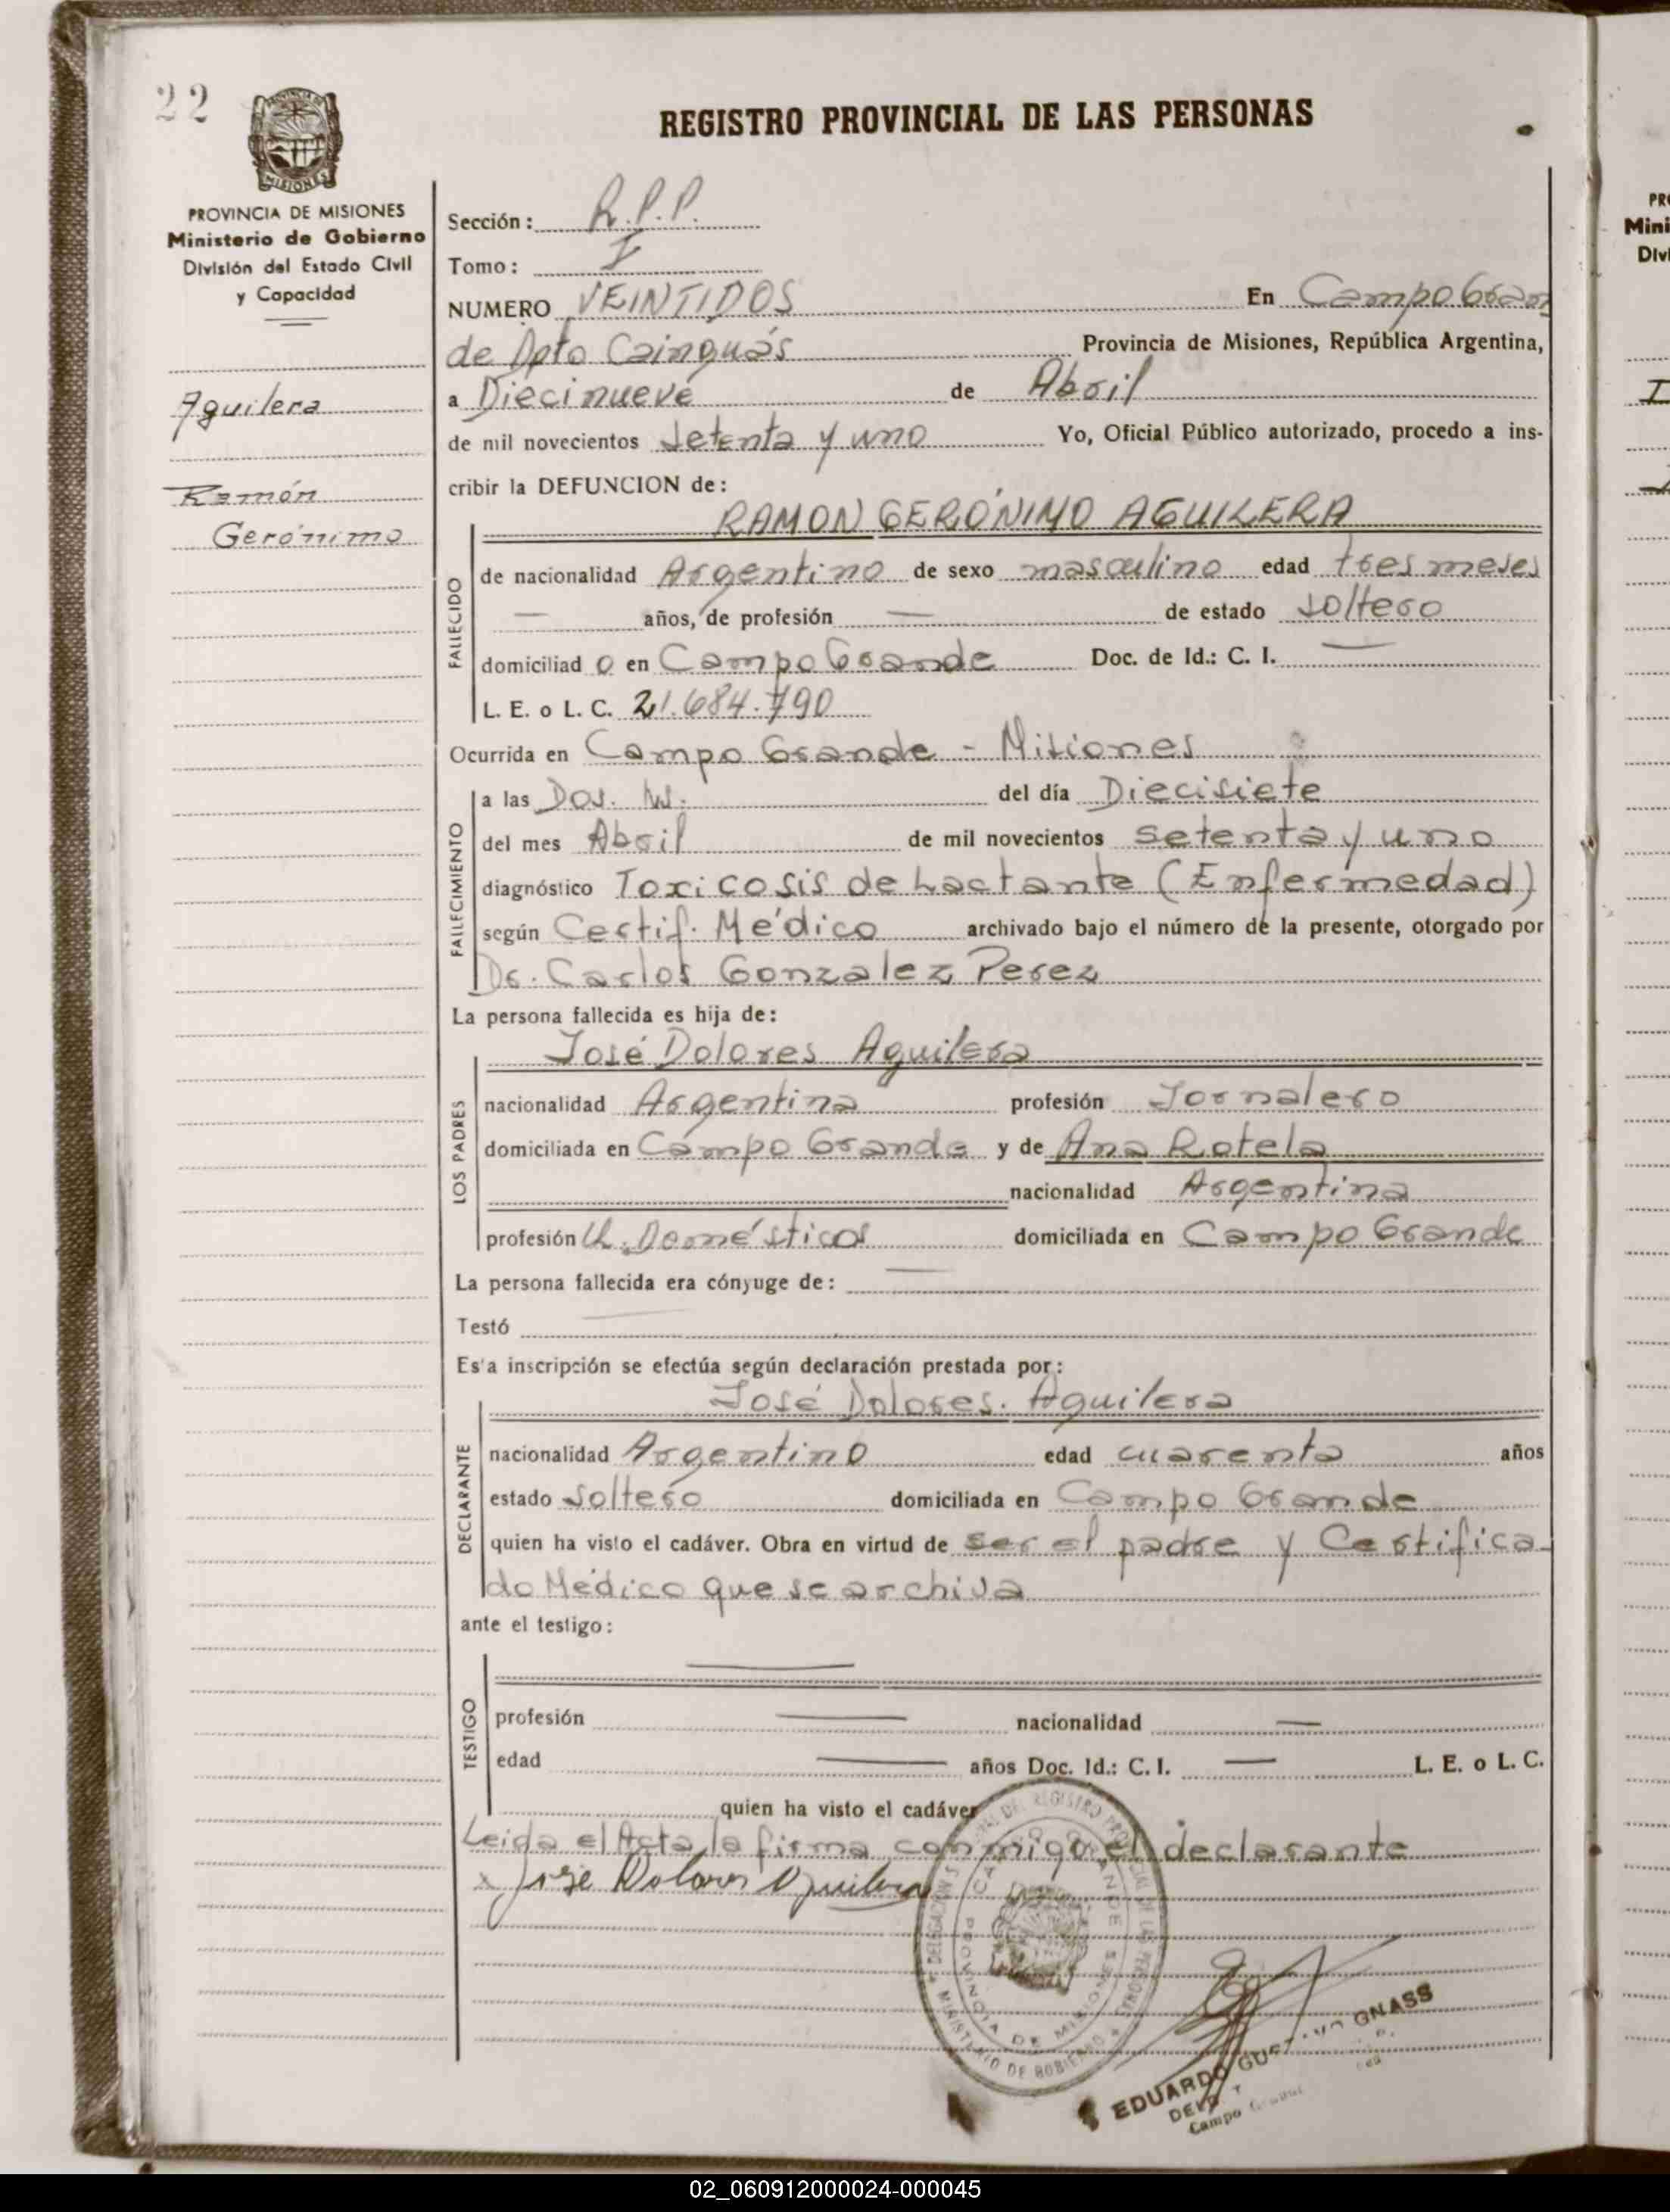 22
REGISTRO PROVINCIAL DE LAS PERSONAS
PROVINCIA DE MISIONES
Ministerio de Gobierno
División del Estado Civil
y Capacidad
Aguilera
Ramón
Gerónimo
Sección: R.P.P.
Tomo: I
NUMERO VEINTIDOS En Campo Gran
de Dpto Cainguás Provincia de Misiones, República Argentina,
a Diecinueve de Abril
de mil novecientos setenta y uno Yo, Oficial Público autorizado, procedo a ins-
cribir la DEFUNCION de:
RAMON GERÓNIMO AGUILERA
FALLECIDO
de nacionalidad Argentino de sexo masculino edad tres meses
— años, de profesión — de estado soltero
domiciliad o en Campo Grande Doc. de Id.: C. I. —
L. E. o L. C. 21.684.790
Ocurrida en Campo Grande - Misiones
FALLECIMIENTO
a las Dos. hs. del día Diecisiete
del mes Abril de mil novecientos setenta y uno
diagnóstico Toxicosis de Lactante (Enfermedad)
según Certif. Médico archivado bajo el número de la presente, otorgado por
Dr. Carlos Gonzalez Perez
La persona fallecida es hija de:
LOS PADRES
José Dolores Aguilera
nacionalidad Argentina profesión Jornalero
domiciliada en Campo Grande y de Ana Rotela
nacionalidad Argentina
profesión Q. Domésticos domiciliada en Campo Grande
La persona fallecida era cónyuge de: —
Testó —
Esta inscripción se efectúa según declaración prestada por:
DECLARANTE
José Dolores. Aguilera
nacionalidad Argentino edad cuarenta años
estado soltero domiciliada en Campo Grande
quien ha visto el cadáver. Obra en virtud de ser el padre y Certifica-
do Médico que se archiva
ante el testigo:
TESTIGO
—
profesión — nacionalidad —
edad — años Doc. Id.: C. I. — L. E. o L. C.
quien ha visto el cadáver
Leida el Acta la firma conmigo el declarante
x José Dolores Aguilera
CAMPO GRANDE
PROVINCIA DE MISIONES
MINISTERIO DE GOBIERNO
EDUARDO GUSTAVO GNASS
Campo
PR
Mini
Divi
02_060912000024-000045